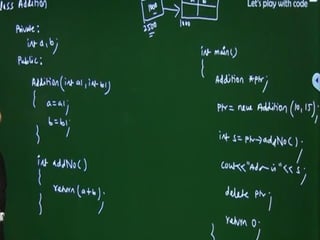 class Addition
Private:
int a, b;
Public:
Addition(int a1, int b1)
{
a = a1;
b = b1;
}
int addNo()
{
return (a+b);
}
1000
2500
1000
Let's play with code
int main()
{
Addition *ptr;
ptr = new Addition(10, 15);
int s = ptr→addNo();
cout<<"Addn is"<<s;
delete ptr;
return 0;
}